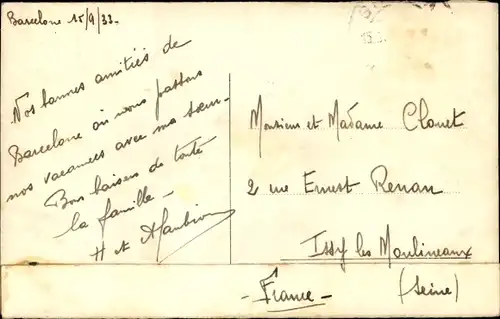 Barcelone 15/9/33-
Nos bonnes amitiés de
Barcelone où nous passons
nos vacances avec ma sœur-
Bons baisers de toute
la famille-
H et A
Monsieur et Madame Clouet
2 rue Ernest Renan
Issy les Moulineaux
(Seine)
- France -